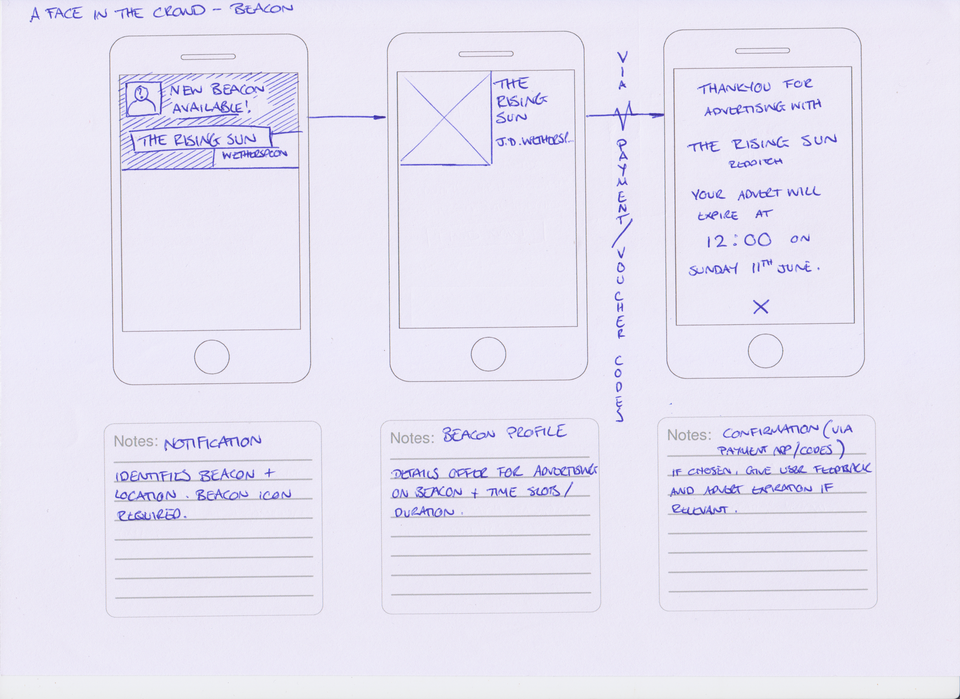 A FACE IN THE CROWD - BEACON
NEW BEACON
AVAILABLE!
THE RISING SUN
WETHERSPOON
THE
RISING
SUN
J.D. WETHERSP...
VIA PAYMENT/VOUCHER CODES
THANKYOU FOR
ADVERTISING WITH
THE RISING SUN
REDDITCH
YOUR ADVERT WILL
EXPIRE AT
12:00 ON
SUNDAY 11TH JUNE.
X
Notes: NOTIFICATION
IDENTIFIES BEACON +
LOCATION. BEACON ICON
REQUIRED.
Notes: BEACON PROFILE
DETAILS OFFER FOR ADVERTISING
ON BEACON + TIME SLOTS/
DURATION.
Notes: CONFIRMATION (VIA
PAYMENT APP/CODES)
IF CHOSEN, GIVE USER FEEDBACK
AND ADVERT EXPIRATION IF
RELEVANT.